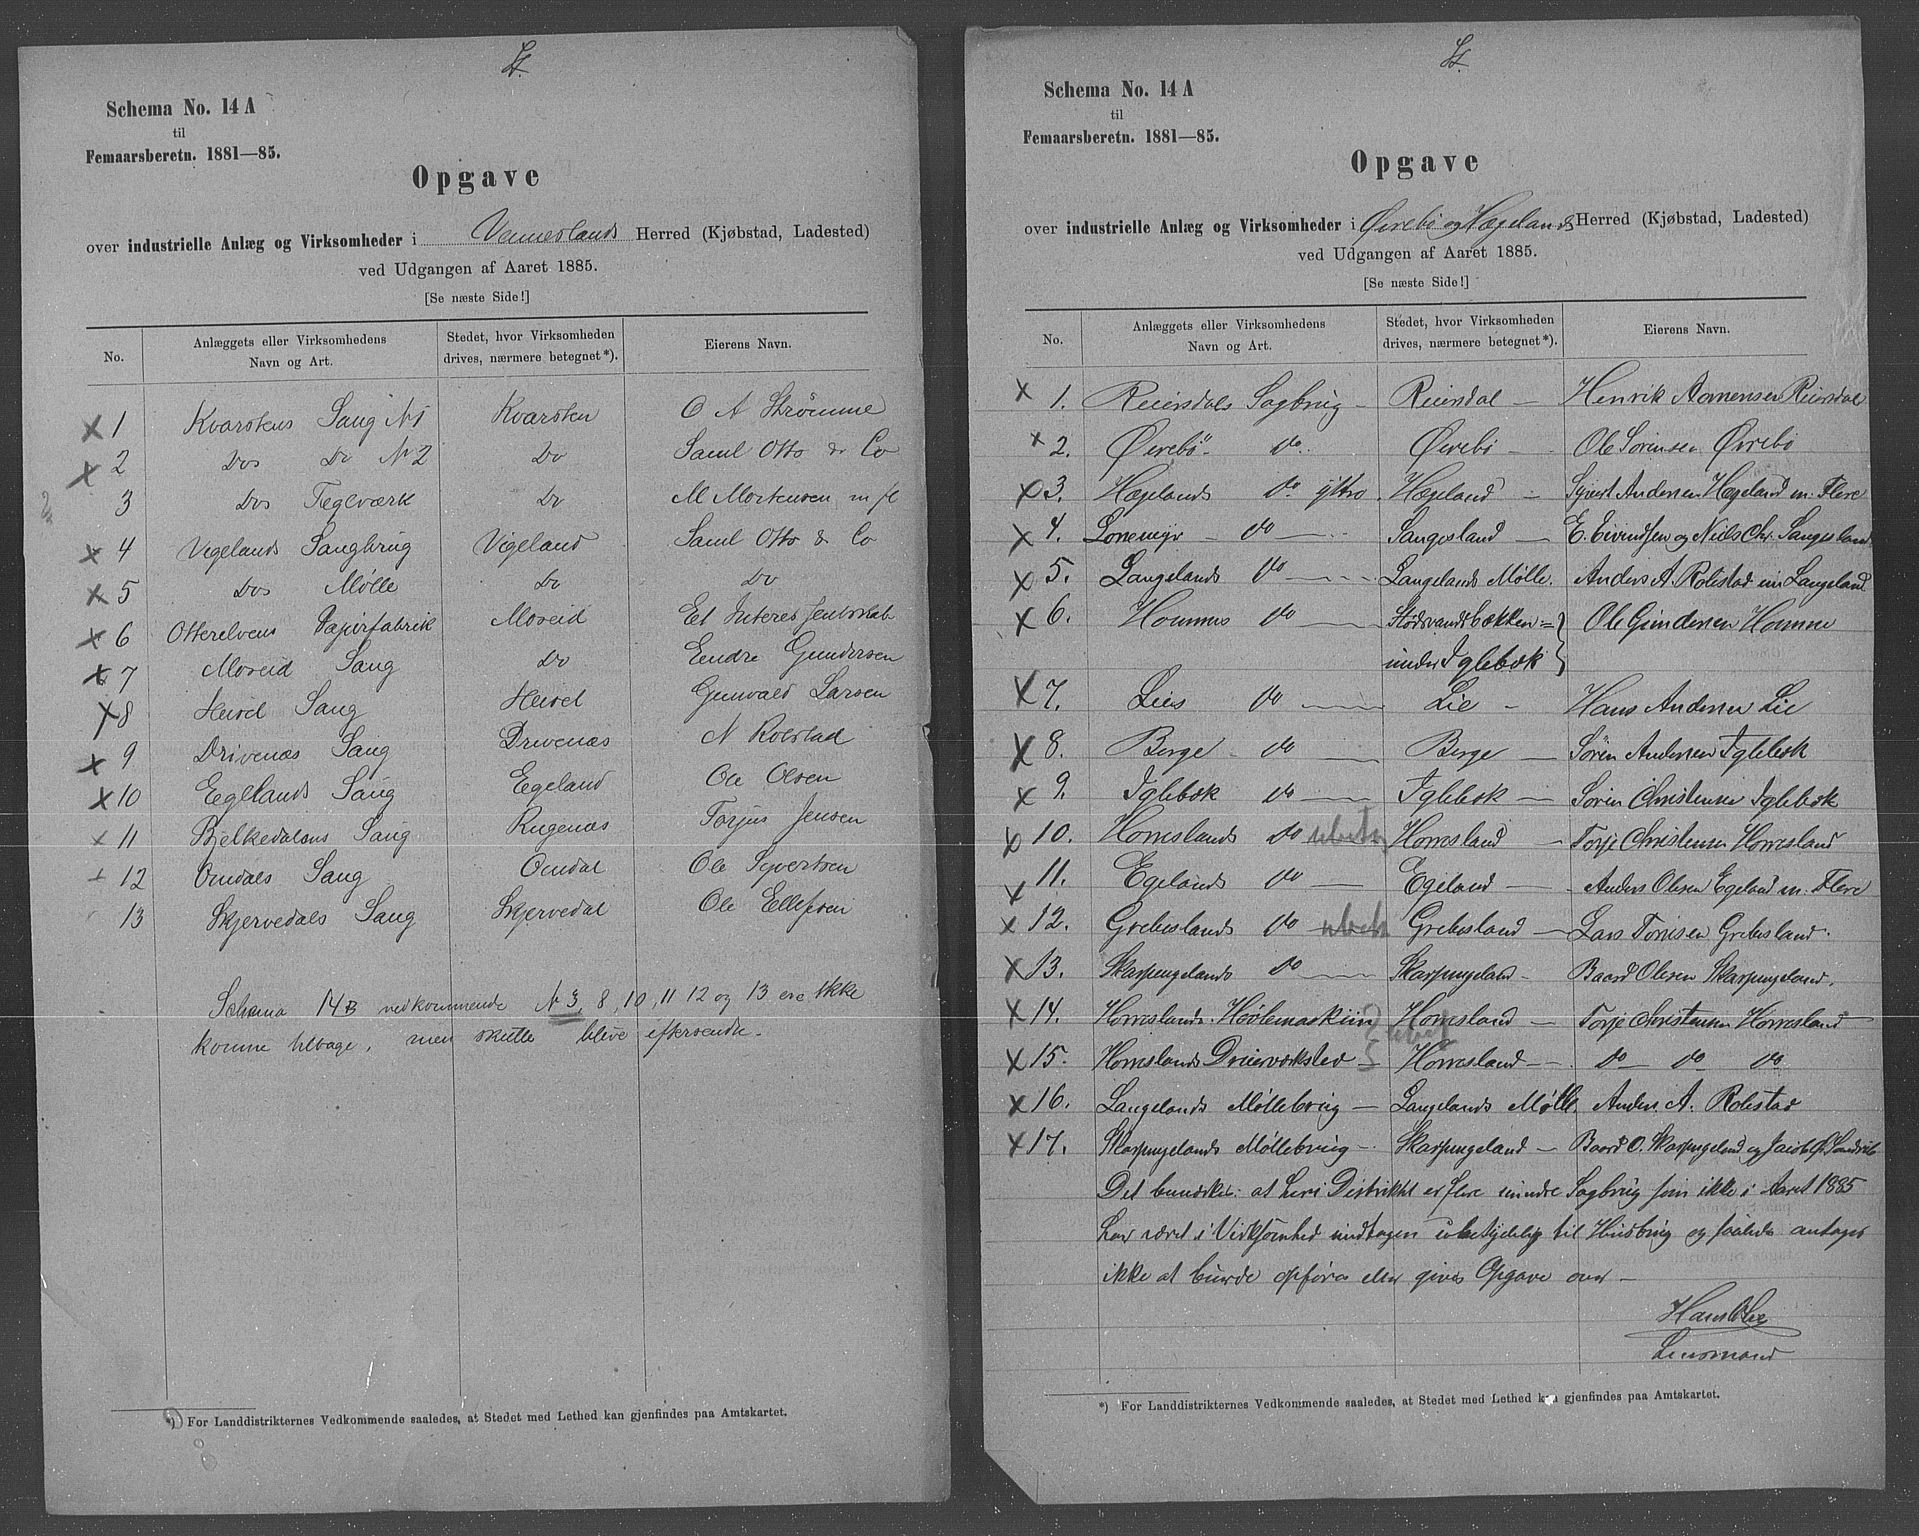 St.
Schema No. 14 A
til
Femaarsberetn. 1881—85.
Opgave
over industrielle Anlæg og Virksomheder i Venneslands Herred (Kjøbstad, Ladested)
ved Udgangen af Aaret 1885.
[Se næste Side!]
No. Anlæggets eller Virksomhedens Navn og Art. Stedet, hvor Virksomheden drives, nærmere betegnet*). Eierens Navn.
x 1 Kvarstens Saug N1 Kvarsten O A Strømme
x 2 Dos Do N 2 Do Saml Otto & Co
3 Dos Teglværk Do M Mortensen m fl
x 4 Vigelands Saugbrug Vigeland Saml Otto & Co
x 5 Dos Mølle Do Do
x 6 Otterelvens Papirfabrik Moseid Et Interessentskab
x 7 Moseid Saug Do Endre Gundersen
x 8 Heisel Saug Heisel Gunvald Larsen
x 9 Drivenæs Saug Drivenæs N Roestad
x 10 Eegelands Saug Egeland Ole Olsen
x 11 Bjelkedalens Saug Rugenæs Torjus Jensen
x 12 Omdals Saug Omdal Ole Syvertsen
13 Skjervedals Saug Skjervedal Ole Ellefsen
Schema 14B vedkommende N 3, 8, 10, 11 12 og 13 ere ikke
komne tilbage, men skulle blive eftersendte.
*) For Landdistrikternes Vedkommende saaledes, at Stedet med Lethed kan gjenfindes paa Amtskartet.
St.
Schema No. 14 A
til
Femaarsberetn. 1881—85.
Opgave
over industrielle Anlæg og Virksomheder i Øvrebø og Hægelands Herred (Kjøbstad, Ladested)
ved Udgangen af Aaret 1885.
[Se næste Side!]
No. Anlæggets eller Virksomhedens Navn og Art. Stedet, hvor Virksomheden drives, nærmere betegnet*). Eierens Navn.
x 1. Reiersdals Sagbrug — Reiersdal — Henrik Aanensen Reiersdal
x 2. Øvrebø do Øvrebø — Ole Sørensen Øvrebø
x 3. Hægelands do ytre Hægeland — Syvert Andersen Hægeland m. Flere
x 4. do — Sangesland — E. Eivindsen og Niels Chr. Sangesland
x 5. Langelands do — Langelands Mølle. Anders A. Rolestad im Langeland
x 6. Hommes do — Stødsvandsbækken = Ole Gundersen Homme
under Iglebæk
x 7. Lies do — Lie — Hans Andersen Lie
x 8. Berge do — Berge — Søren Andersen Iglebæk
x 9. Iglebæk do — Iglebæk — Søren Christensen Iglebæk
x 10. Homeslands do ubety Homesland — Torje Christensen Homesland
x 11. Egelands do — Egeland — Anders Olsen Egeland m. Flere
x 12. Grebeslands do — ubety Grebesland — Lars Tomesen Grebesland.
x 13. Skarpengelands do — Skarpengeland — Baard Olesen Skarpengeland.
x 14. Homeslands Høvlemaskiin Homesland — Torje Christensen Homesland
x 15. Homeslands Dreierværksted Homesland — do do do
x 16. Langelands Møllebrug — Langelands Mølle. Anders A. Rolestad
x 17. Skarpengelands Møllebrug — Skarpengeland — Baard O. Skarpengeland og Jacob
Det bemærkes: at her i Distriktet er flere mindre Sagbrug som ikke i Aaret 1885
har været i Virksomhed undtagen ubetydelig til Husbrug og saaledes antages
ikke at burde opføres eller gives Opgave over —
Hans O Lie
Lensmand
*) For Landdistrikternes Vedkommende saaledes, at Stedet med Lethed kan gjenfindes paa Amtskartet.